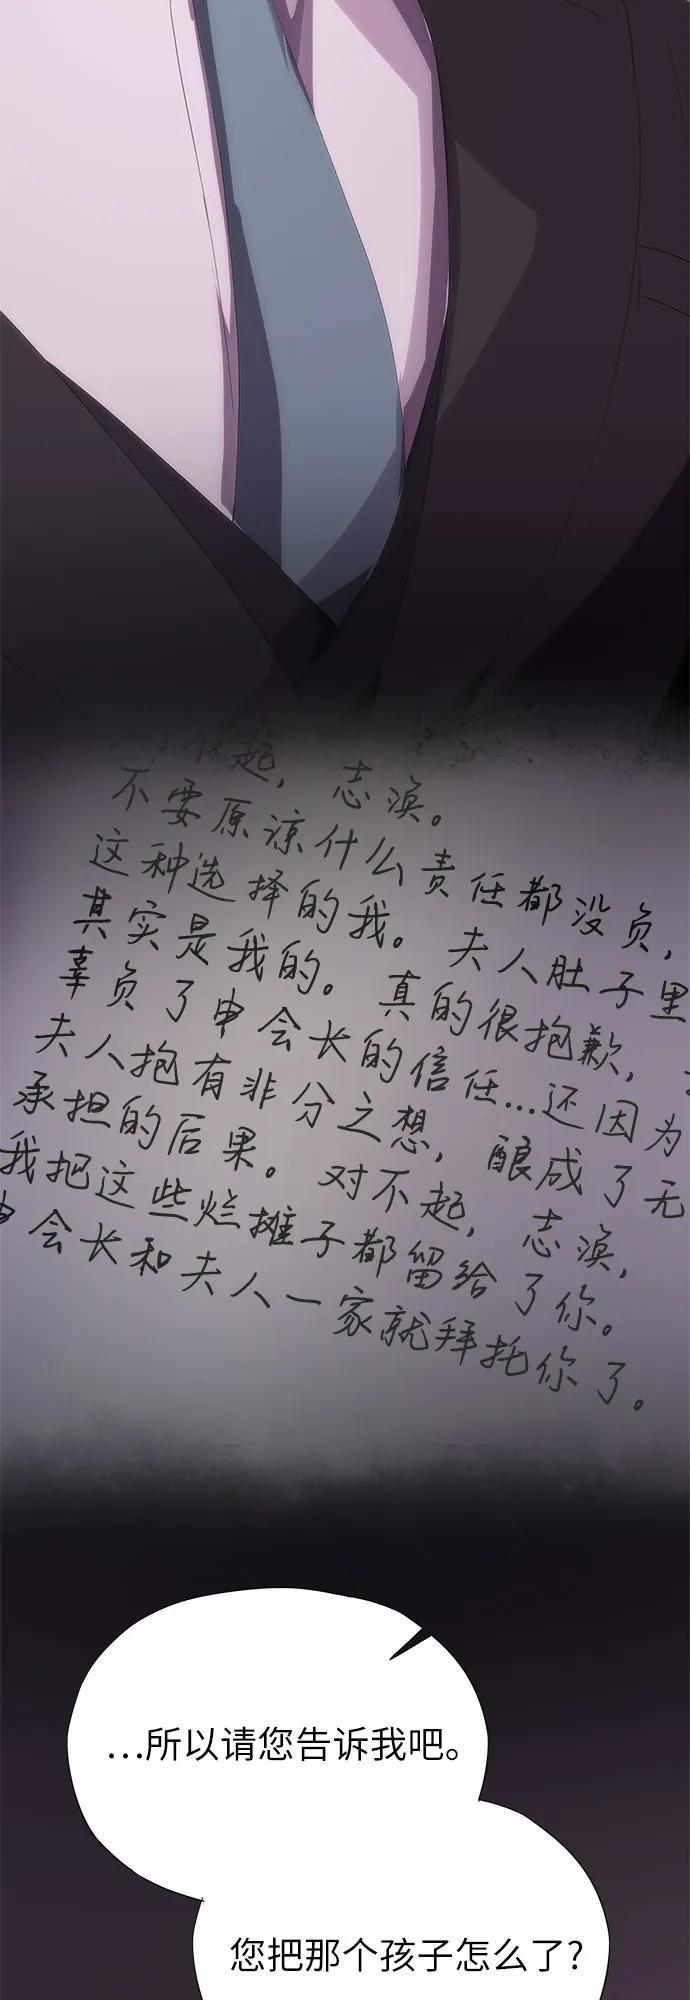 不起，志涣。
不要原谅什么责任都没负，
这种选择的我。夫人肚子里
其实是我的。真的很抱歉，
辜负了申会长的信任...还因为
夫人抱有非分之想，酿成了无
承担的后果。对不起，志涣，
我把这些烂摊子都留给了你。
申会长和夫人一家就拜托你了。
...所以请您告诉我吧。
您把那个孩子怎么了?